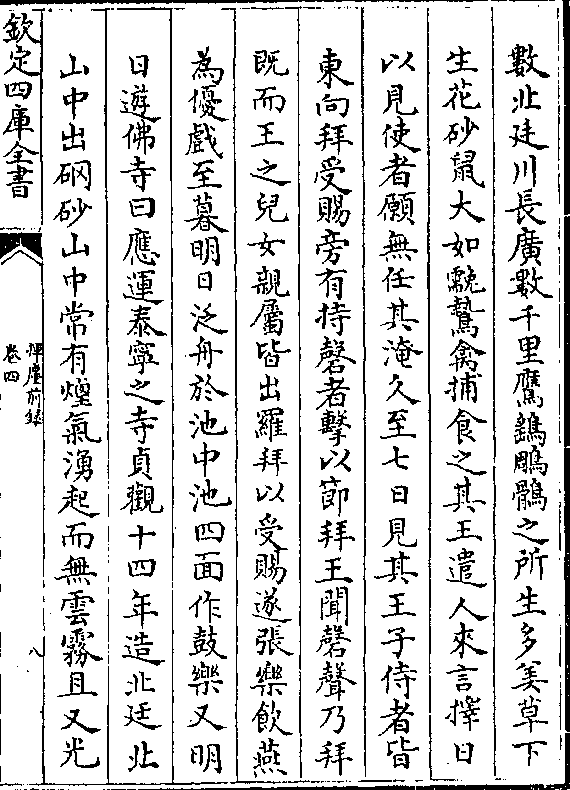 數北廷川長廣數千里鷹鷂鵰鶻之所生多美草下
生花砂鼠大如䨲鷙禽捕食之其王遣人來言擇日
以見使者願無任其淹久至七日見其王子侍者皆
東向拜受賜旁有持磬者擊以節拜王聞磬聲乃拜
既而王之兒女親屬皆出羅拜以受賜遂張樂飲燕
為優戲至暮明日泛舟於池中池四面作鼓樂又明
日遊佛寺曰應運泰寧之寺貞觀十四年造北廷北
山中出硇砂山中常有煙氣湧起而無雲霧且又光
欽定四庫全書
揮麈前錄
卷四
八